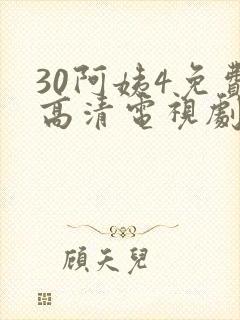 30阿姨4免費
高清電視劇
顧天兒